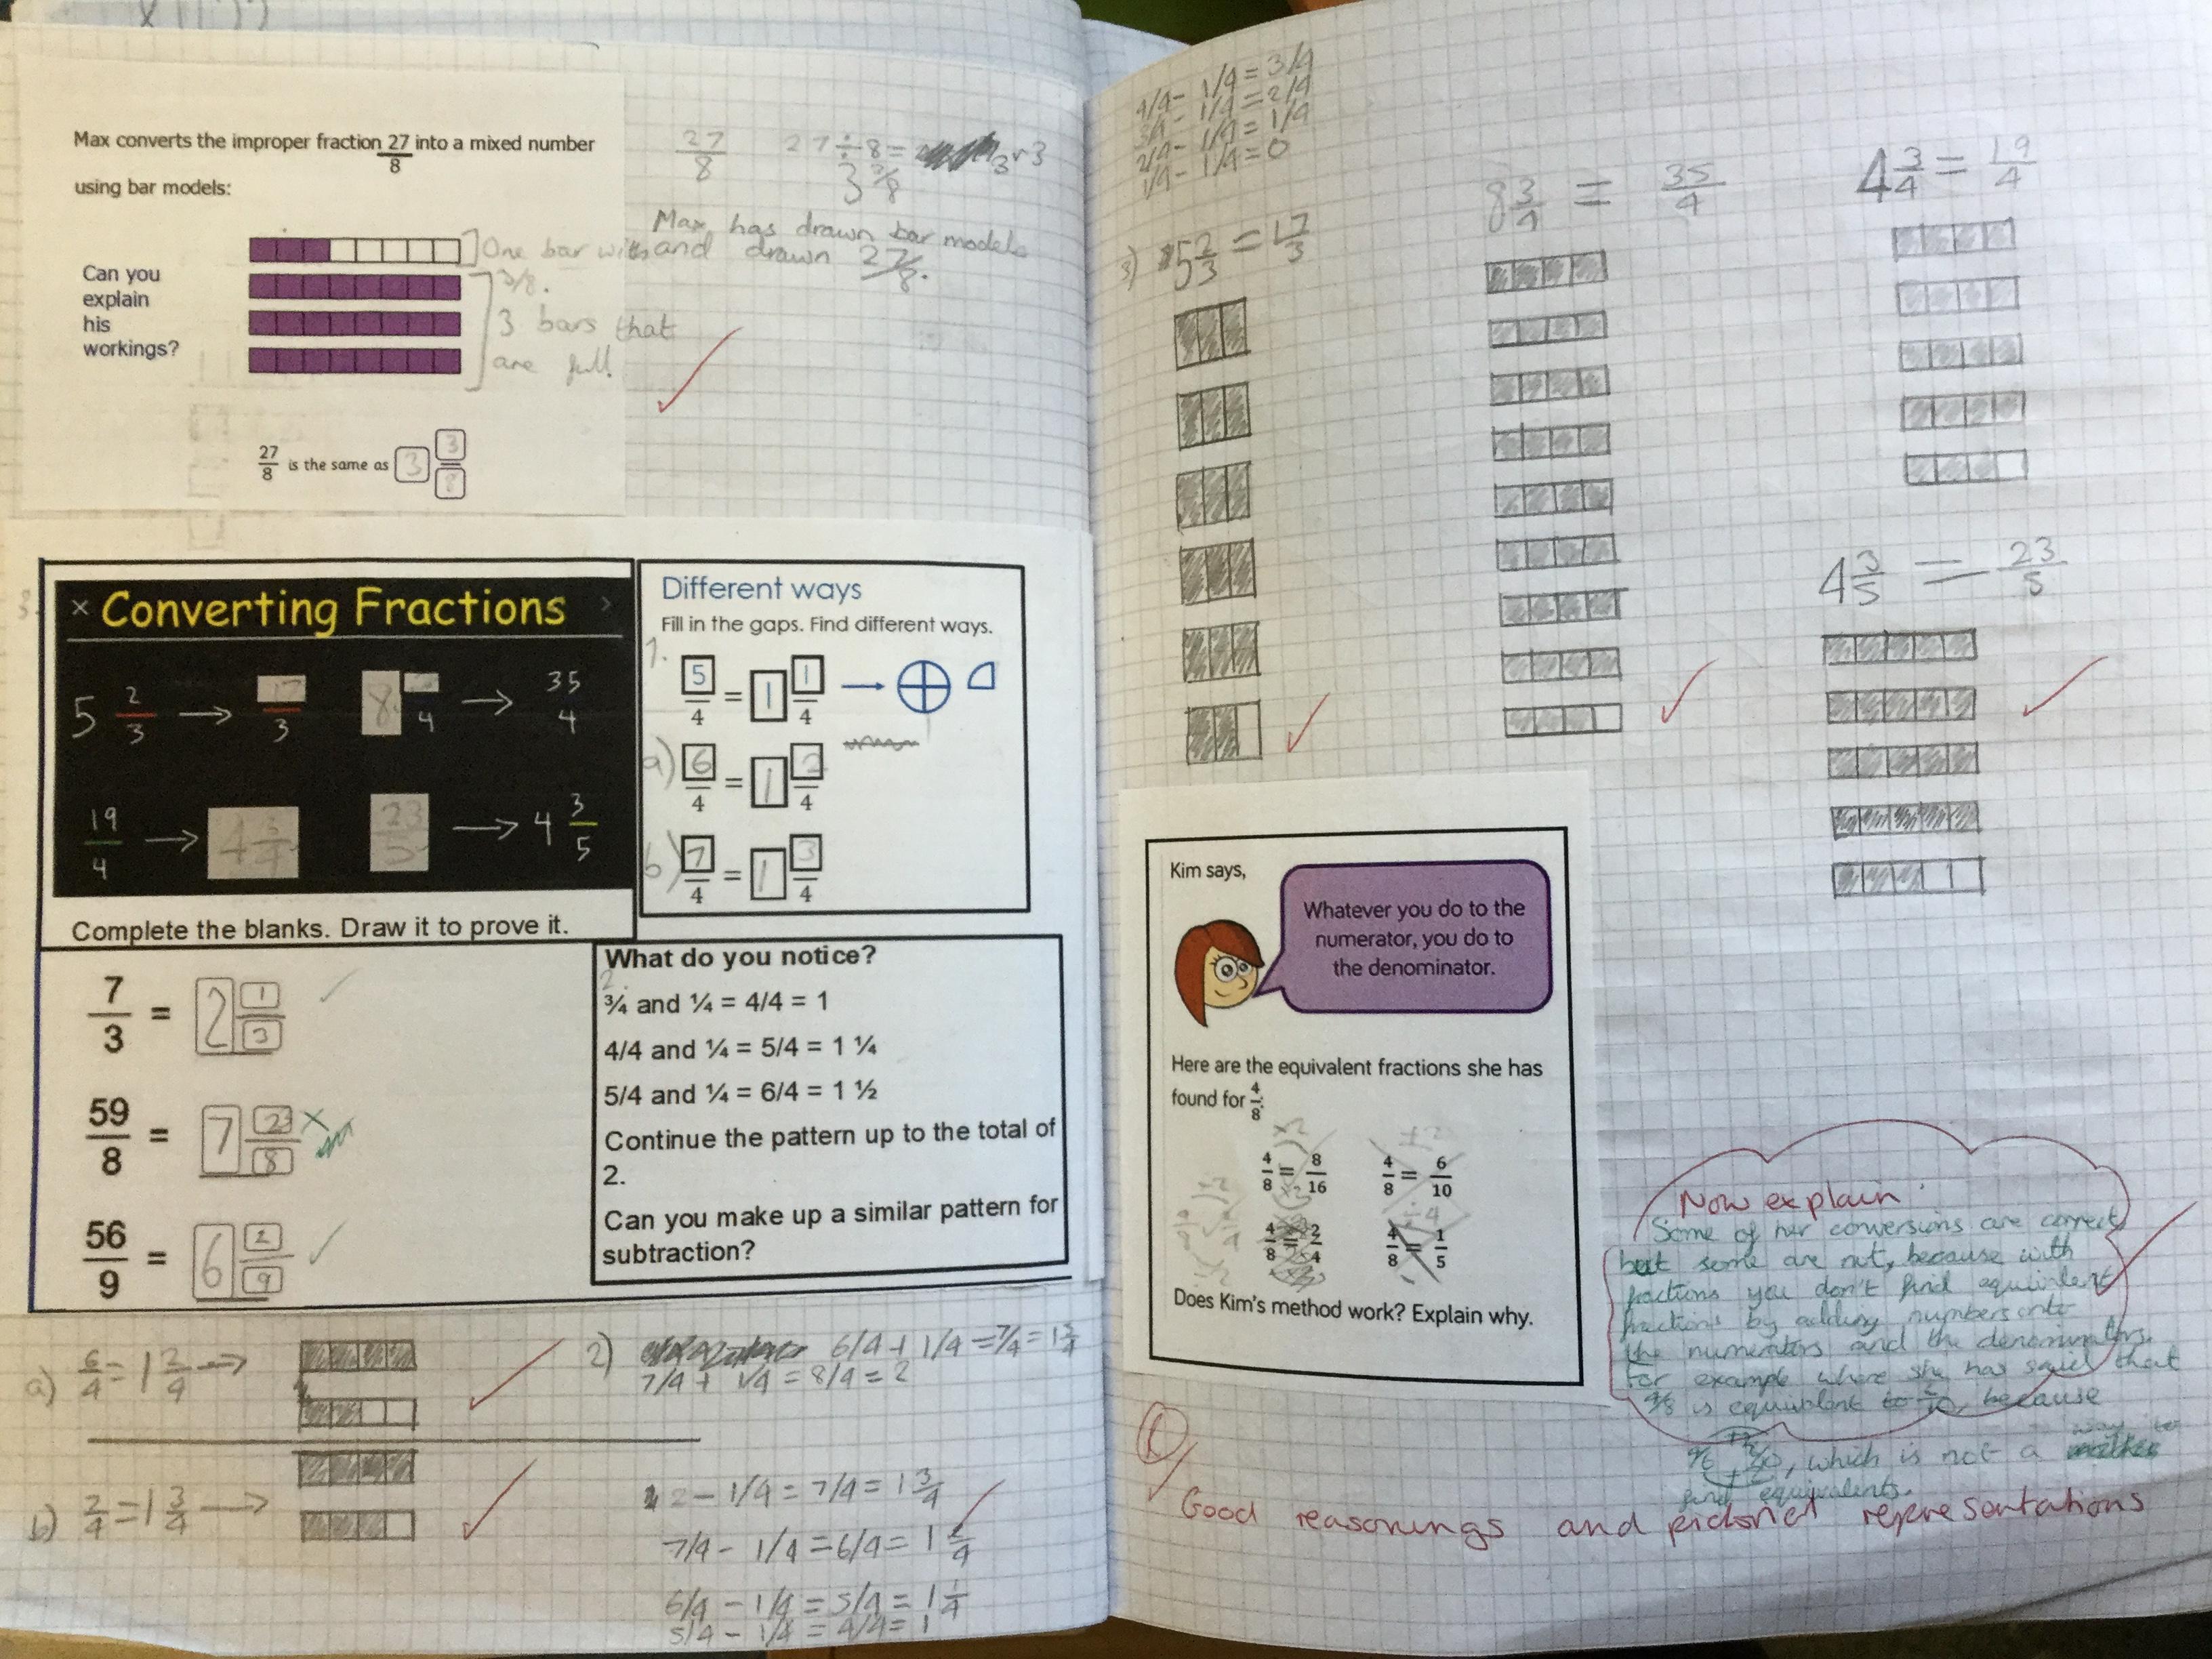 Max converts the improper fraction 27/8 into a mixed number
using bar models:
Can you
explain
his
workings?
One bar with
3/8.
3 bars that
are full.
27/8 is the same as 3 3/8
27/8 27÷8= 3 r 3
3 3/8
Max has drawn bar models
and drawn 27/8.
3.
× Converting Fractions
5 2/3 → 17/3 8 /4 → 35/4
19/4 → 4 3/4 23/5 → 4 3/5
Complete the blanks. Draw it to prove it.
Different ways
Fill in the gaps. Find different ways.
1.
5/4 = 1 1/4 →
a) 6/4 = 1 2/4
b) 7/4 = 1 3/4
7/3 = 2 1/3
59/8 = 7 /8
56/9 = 6 2/9
What do you notice?
2.
¾ and ¼ = 4/4 = 1
4/4 and ¼ = 5/4 = 1 ¼
5/4 and ¼ = 6/4 = 1 ½
Continue the pattern up to the total of
2.
Can you make up a similar pattern for
subtraction?
a) 6/4 = 1 2/4 →
b) 2/4 = 1 3/4 →
2) 6/4 + 1/4 = 7/4 = 1 3/4
7/4 + 1/4 = 8/4 = 2
2 - 1/4 = 7/4 = 1 3/4
7/4 - 1/4 = 6/4 = 1 2/4
6/4 - 1/4 = 5/4 = 1 1/4
5/4 - 1/4 = 4/4 = 1
4/4 - 1/4 = 3/4
3/4 - 1/4 = 2/4
2/4 - 1/4 = 1/4
1/4 - 1/4 = 0
3) 5 2/3 = 17/3
8 3/4 = 35/4
4 3/4 = 19/4
4 3/5 = 23/5
Kim says,
Whatever you do to the
numerator, you do to
the denominator.
Here are the equivalent fractions she has
found for 4/8:
×2 +2
4/8 = 8/16 4/8 = 6/10
÷4
4/8 = 2/4 4/8 = 1/5
Does Kim's method work? Explain why.
Now explain.
Some of her conversions are correct
but some are not, because with
fractions you don't find equivlent
fractions by adding numbers onto
the numerators and the denominators.
For example where she has said that
4/8 is equivlent to because
which is not a way to
find equivalents.
Good reasonings and pictorial representations